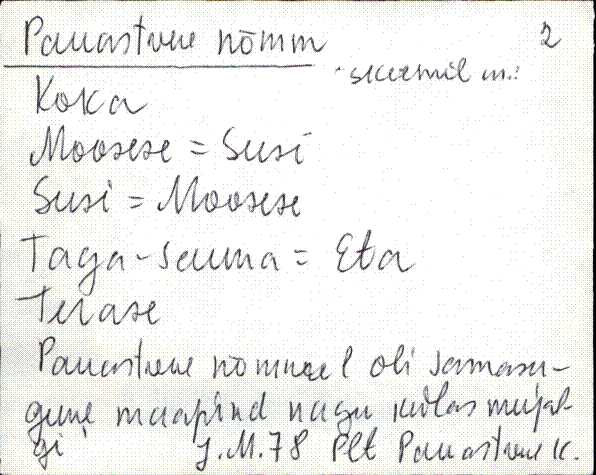 Panastvere nõmm 2
skeemil m.:
Koka
Moosese = Susi
Susi = Moosese
Taga-sauna = Eta
Terase
Panastvere nõmmel oli samasu-
gune maapind nagu külas mujal-
gi J.M.78 Plt Panastvere k.